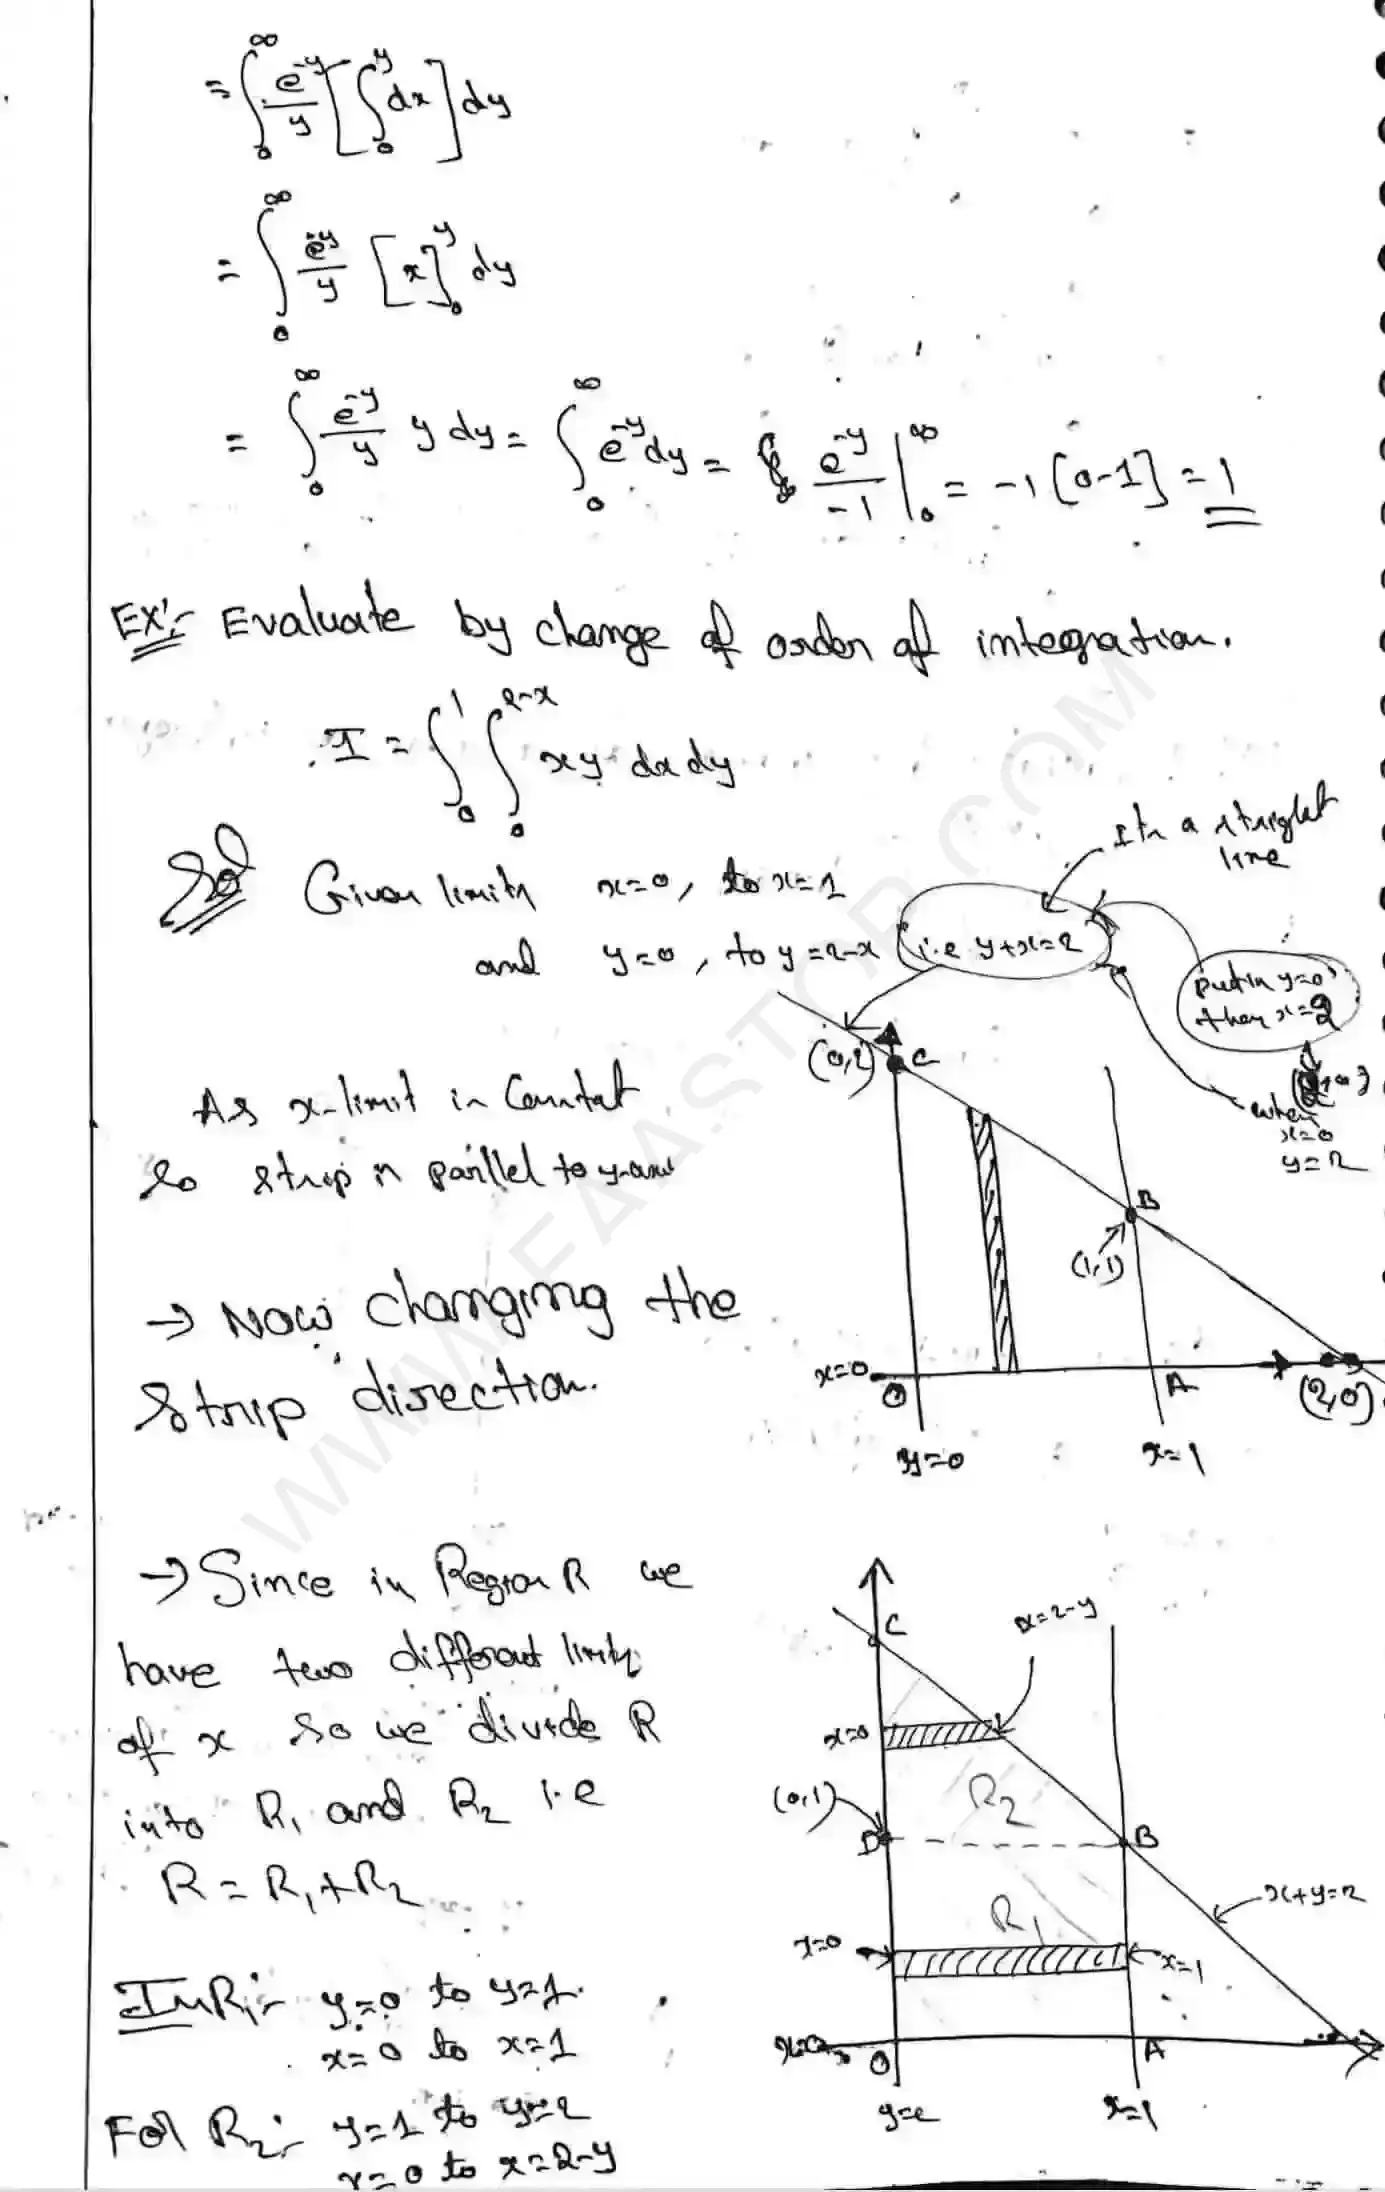 = ∫₀^∞ e^-y/y [∫₀^y dx] dy
= ∫₀^∞ e^-y/y [x]₀^y dy
= ∫₀^∞ e^-y/y y dy = ∫₀^∞ e^-y dy = e^-y/-1 |₀^∞ = -1 [0-1] = 1
EX:- Evaluate by change of order of integration.
I = ∫₀^1 ∫₀^2-x xy dx dy
Sol Given limits x=0, to x=1
and y=0, to y=2-x (i.e y+x=2)
Its a straight line
put in y=0 then x=2
when x=0 y=2
As x-limit is Constat
So strip is parllel to y-axis
(0,2) C
B
(1,1)
→ Now changing the
Strip direction.
x=0 O A (2,0)
y=0 x=1
→ Since in Region R we
have two different limits
of x so we divide R
into R₁ and R₂ i.e
R = R₁+R₂
In R₁:- y=0 to y=1.
x=0 to x=1
For R₂:- y=1 to y=2
x=0 to x=2-y
C x=2-y
x=0
R₂
(0,1) D B
x+y=2
R₁
x=0 x=1
x=0 O A
x=1
WWW.FAASTOP.COM